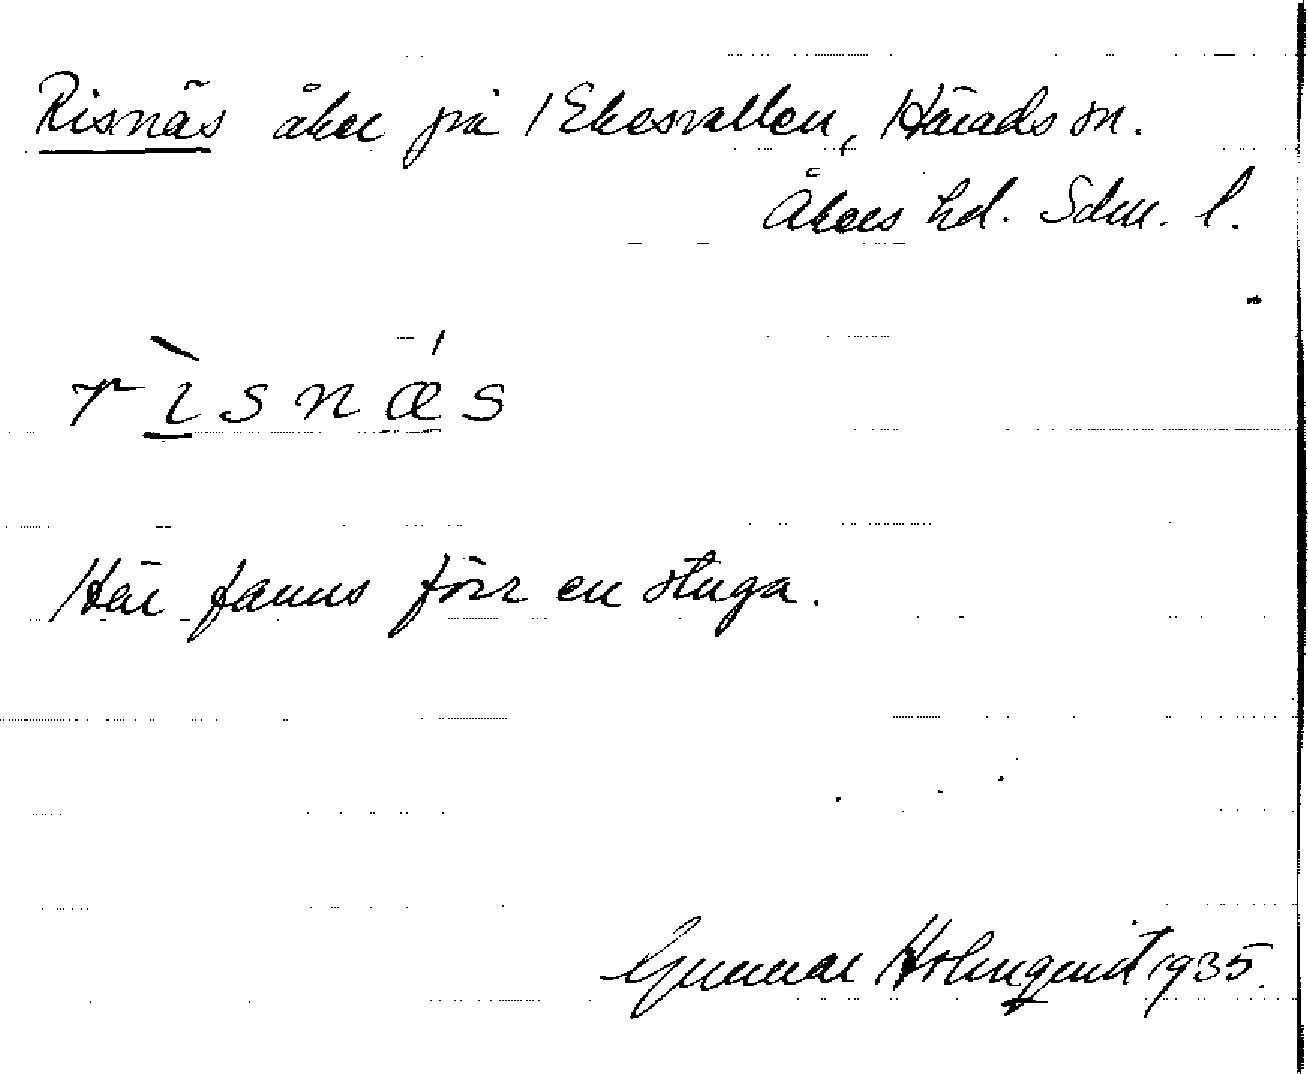 Risnäs åker på 1 Ekesvallen, Härads sn.
Åkers hd. Sdm. l.
rìsnǽs
Här fanns förr en stuga.
Gunnar Holmquist 1935.